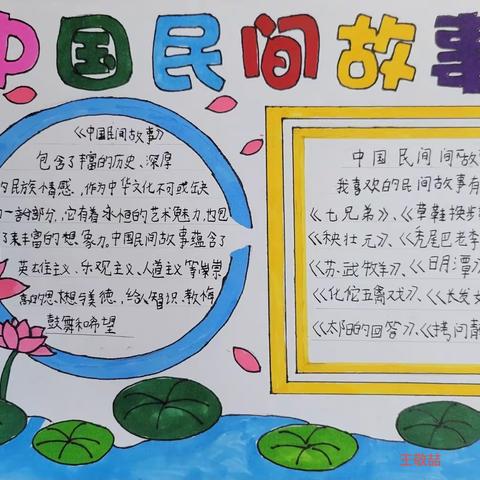 中国民间故事
《中国民间故事》
包含了丰富的历史、深厚
的民族情感，作为中华文化不可或缺
的一部分，它有着永恒的艺术魅力，也包
了丰富的想象力。中国民间故事蕴含了
英雄主义、乐观主义、人道主义等崇
高的思想与美德，给人智识、教悔
鼓舞和希望
中国民间故
我喜欢的民间故事有
《七兄弟》、《草鞋换
《秧壮元》、《秃尾巴老李
《苏武牧羊》、《日月潭》
《化佗五禽戏》、《长发女
《太阳的回答》、《拷问
王敬喆